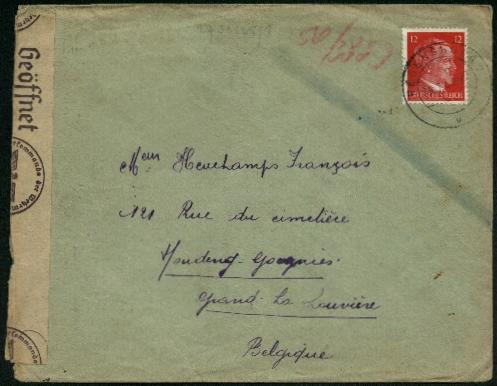 12 12
DEUTSCHES REICH
Geöffnet
Meur Heuchamps François
121 Rue du cimetière
Houdeng-Goegnies
Grand-La Louvière
Belgique